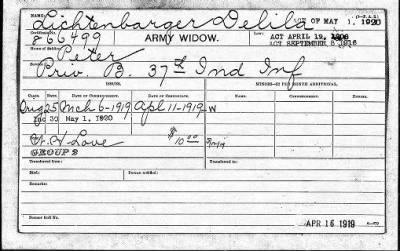 (3-7 A. G.)
NAME: Lichtenbarger Delila ACT OF MAY 1, 1920
Certificate No. 866499 ARMY WIDOW. ACT APRIL 19, 1908
ACT SEPTEMBER 8, 1916
Name of Soldier: Peter
Service: Priv. B. 37th Ind Inf
ISSUE. MINORS—$2 PER MONTH ADDITIONAL.
CLASS. RATE. DATE OF COMMENCEMENT. DATE OF CERTIFICATE. NAME. COMMENCEMENT. ENDING.
Aug 25 Mch 6-1919 Apl 11-1919-W
Inc 30 May 1, 1920
W. H. Love $10.00
GROUP 2
Transferred from: Transferred to:
Died: Bureau notified:
Remarks:
Former Roll No.
APR 16 1919